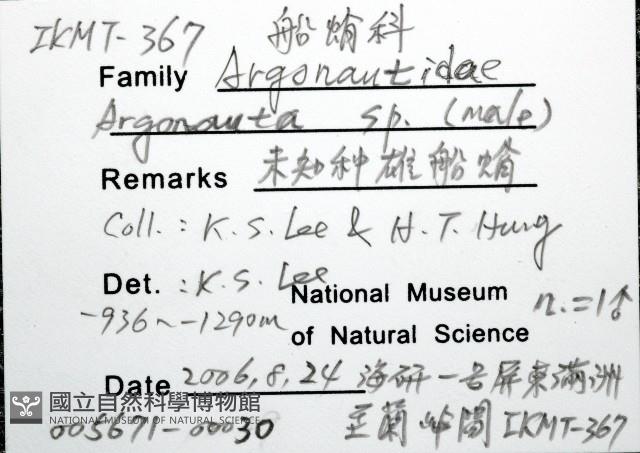 IKMT-367 船蛸科
Family Argonautidae
Argonauta sp. (male)
Remarks 未知种雄船蛸
Coll.: K.S. Lee & H.T. Hung
Det. : K.S. Lee
National Museum of Natural Science
n.=1♂
-936~-1290m
Date 2006,8,24 海研一号屏東滿洲
至蘭嶼間 IKMT-367
國立自然科學博物館
NATIONAL MUSEUM OF NATURAL SCIENCE
005671-00030